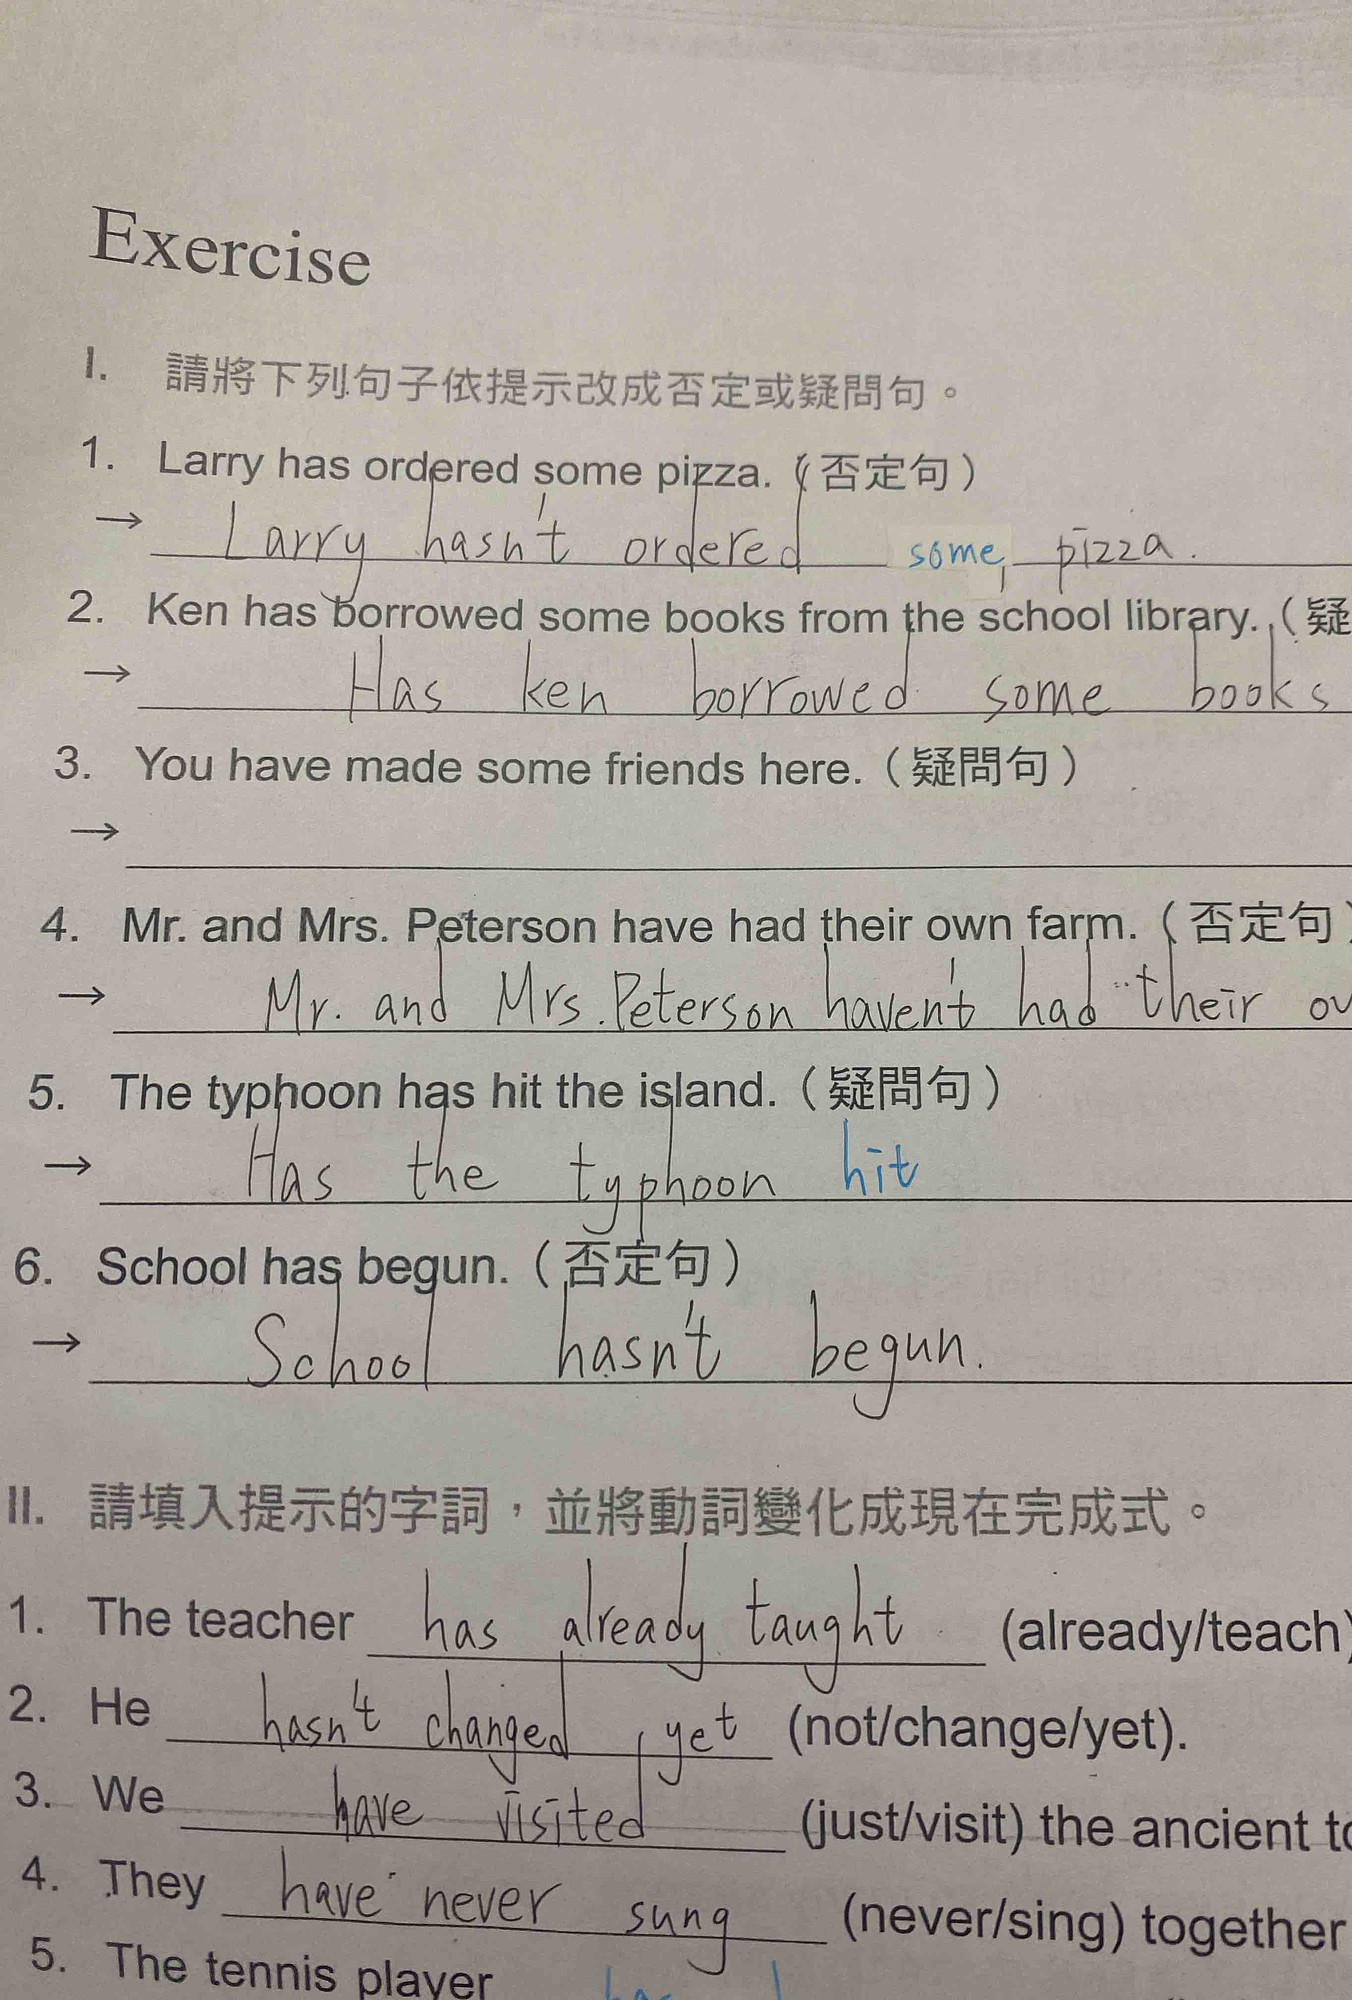 Exercise
I. 請將下列句子依提示改成否定或疑問句。
1. Larry has ordered some pizza. (否定句)
→ Larry hasn't ordered some pizza.
2. Ken has borrowed some books from the school library. (疑
→ Has ken borrowed some books
3. You have made some friends here. (疑問句)
→
4. Mr. and Mrs. Peterson have had their own farm. (否定句)
→ Mr. and Mrs. Peterson haven't had their ow
5. The typhoon has hit the island. (疑問句)
→ Has the typhoon hit
6. School has begun. (否定句)
→ School hasn't begun.
II. 請填入提示的字詞，並將動詞變化成現在完成式。
1. The teacher has already taught (already/teach)
2. He hasn't changed yet (not/change/yet).
3. We have visited (just/visit) the ancient to
4. They have never sung (never/sing) together
5. The tennis player